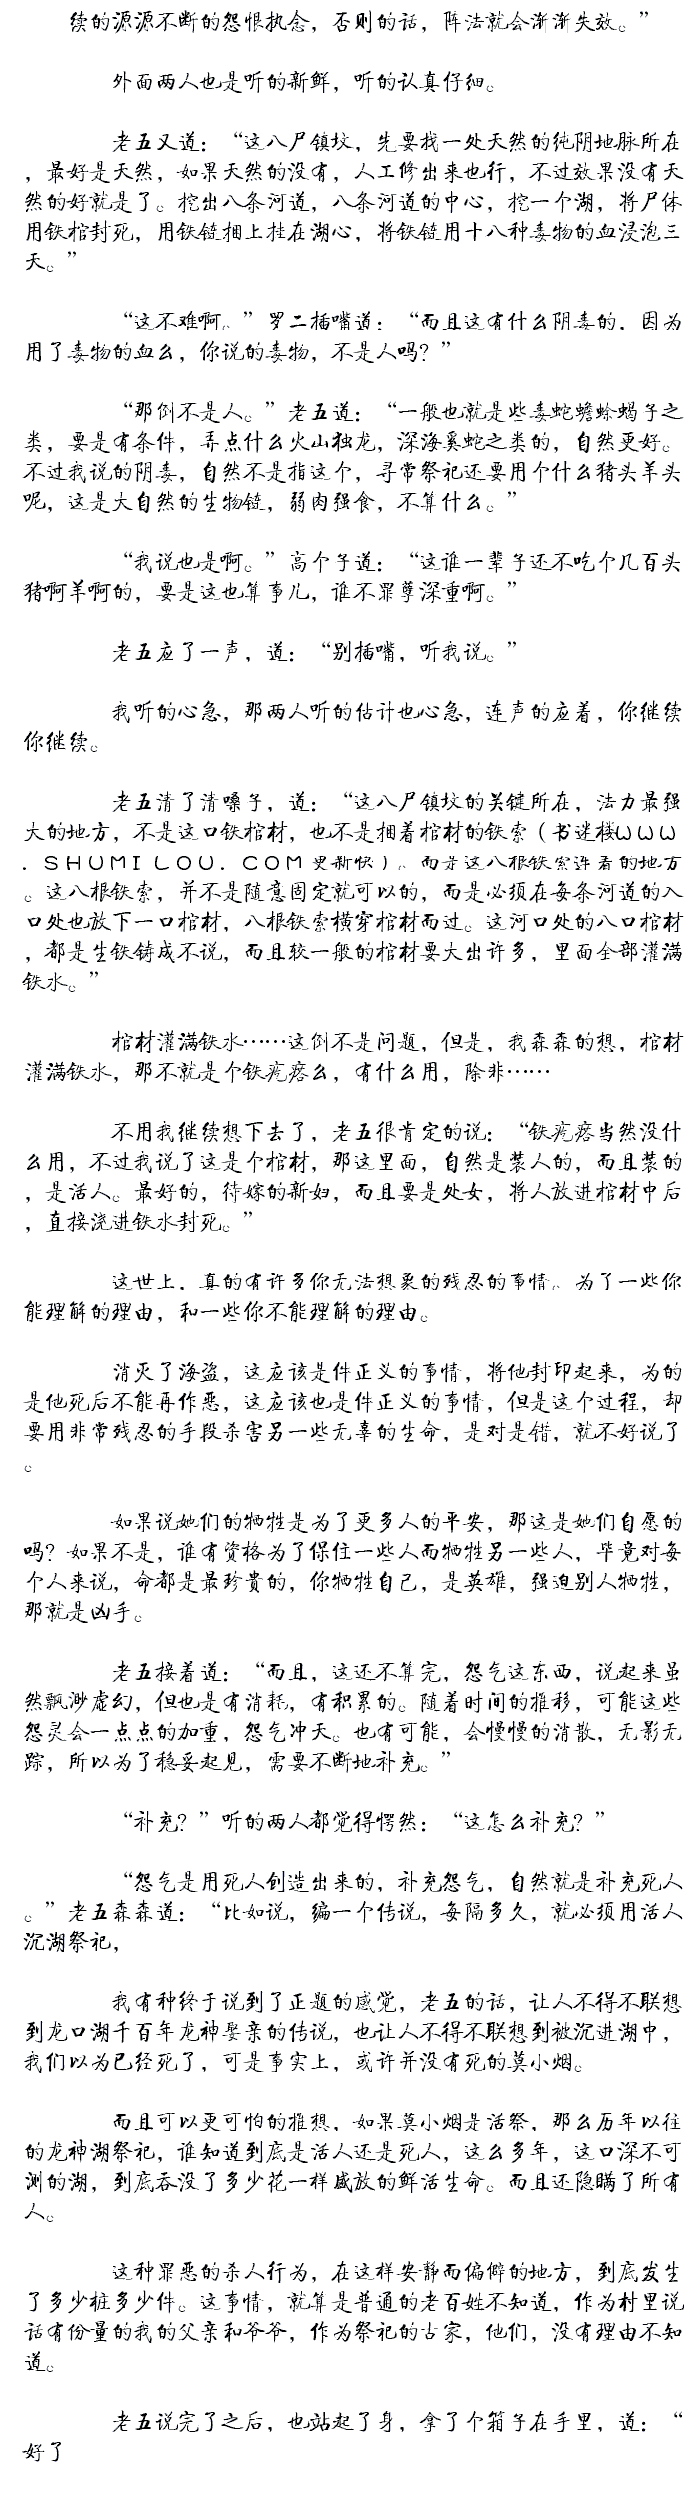 续的源源不断的怨恨执念，否则的话，阵法就会渐渐失效。”
外面两人也是听的新鲜，听的认真仔细。
老五又道：“这八尸镇坟，先要找一处天然的纯阴地脉所在
，最好是天然，如果天然的没有，人工修出来也行，不过效果没有天
然的好就是了。挖出八条河道，八条河道的中心，挖一个湖，将尸体
用铁棺封死，用铁链捆上挂在湖心，将铁链用十八种毒物的血浸泡三
天。”
“这不难啊。”罗二插嘴道：“而且这有什么阴毒的，因为
用了毒物的血么，你说的毒物，不是人吗？”
“那倒不是人。”老五道：“一般也就是些毒蛇蟾蜍蝎子之
类，要是有条件，弄点什么火山独龙，深海奚蛇之类的，自然更好。
不过我说的阴毒，自然不是指这个，寻常祭祀还要用个什么猪头羊头
呢，这是大自然的生物链，弱肉强食，不算什么。”
“我说也是啊。”高个子道：“这谁一辈子还不吃个几百头
猪啊羊啊的，要是这也算事儿，谁不罪孽深重啊。”
老五应了一声，道：“别插嘴，听我说。”
我听的心急，那两人听的估计也心急，连声的应着，你继续
你继续。
老五清了清嗓子，道：“这八尸镇坟的关键所在，法力最强
大的地方，不是这口铁棺材，也不是捆着棺材的铁索（书迷楼ＷＷＷ
．ＳＨＵＭＩＬＯＵ．ＣＯＭ更新快）。而是这八根铁索连着的地方
。这八根铁索，并不是随意固定就可以的，而是必须在每条河道的入
口处也放下一口棺材，八根铁索横穿棺材而过。这河口处的八口棺材
，都是生铁铸成不说，而且较一般的棺材要大出许多，里面全部灌满
铁水。”
棺材灌满铁水……这倒不是问题，但是，我森森的想，棺材
灌满铁水，那不就是个铁疙瘩么，有什么用，除非……
不用我继续想下去了，老五很肯定的说：“铁疙瘩当然没什
么用，不过我说了这是个棺材，那这里面，自然是装人的，而且装的
，是活人。最好的，待嫁的新妇，而且要是处女，将人放进棺材中后
，直接浇进铁水封死。”
这世上，真的有许多你无法想象的残忍的事情。为了一些你
能理解的理由，和一些你不能理解的理由。
消灭了海盗，这应该是件正义的事情，将他封印起来，为的
是他死后不能再作恶，这应该也是件正义的事情，但是这个过程，却
要用非常残忍的手段杀害另一些无辜的生命，是对是错，就不好说了
。
如果说她们的牺牲是为了更多人的平安，那这是她们自愿的
吗？如果不是，谁有资格为了保住一些人而牺牲另一些人，毕竟对每
个人来说，命都是最珍贵的，你牺牲自己，是英雄，强迫别人牺牲，
那就是凶手。
老五接着道：“而且，这还不算完，怨气这东西，说起来虽
然飘渺虚幻，但也是有消耗，有积累的。随着时间的推移，可能这些
怨灵会一点点的加重，怨气冲天。也有可能，会慢慢的消散，无影无
踪，所以为了稳妥起见，需要不断地补充。”
“补充？”听的两人都觉得愕然：“这怎么补充？”
“怨气是用死人创造出来的，补充怨气，自然就是补充死人
。”老五森森道：“比如说，编一个传说，每隔多久，就必须用活人
沉湖祭祀，
我有种终于说到了正题的感觉，老五的话，让人不得不联想
到龙口湖千百年龙神娶亲的传说，也让人不得不联想到被沉进湖中，
我们以为已经死了，可是事实上，或许并没有死的莫小烟。
而且可以更可怕的推想，如果莫小烟是活祭，那么历年以往
的龙神湖祭祀，谁知道到底是活人还是死人，这么多年，这口深不可
测的湖，到底吞没了多少花一样盛放的鲜活生命。而且还隐瞒了所有
人。
这种罪恶的杀人行为，在这样安静而偏僻的地方，到底发生
了多少桩多少件。这事情，就算是普通的老百姓不知道，作为村里说
话有份量的我的父亲和爷爷，作为祭祀的古家，他们，没有理由不知
道。
老五说完了之后，也站起了身，拿了个箱子在手里，道：“
好了